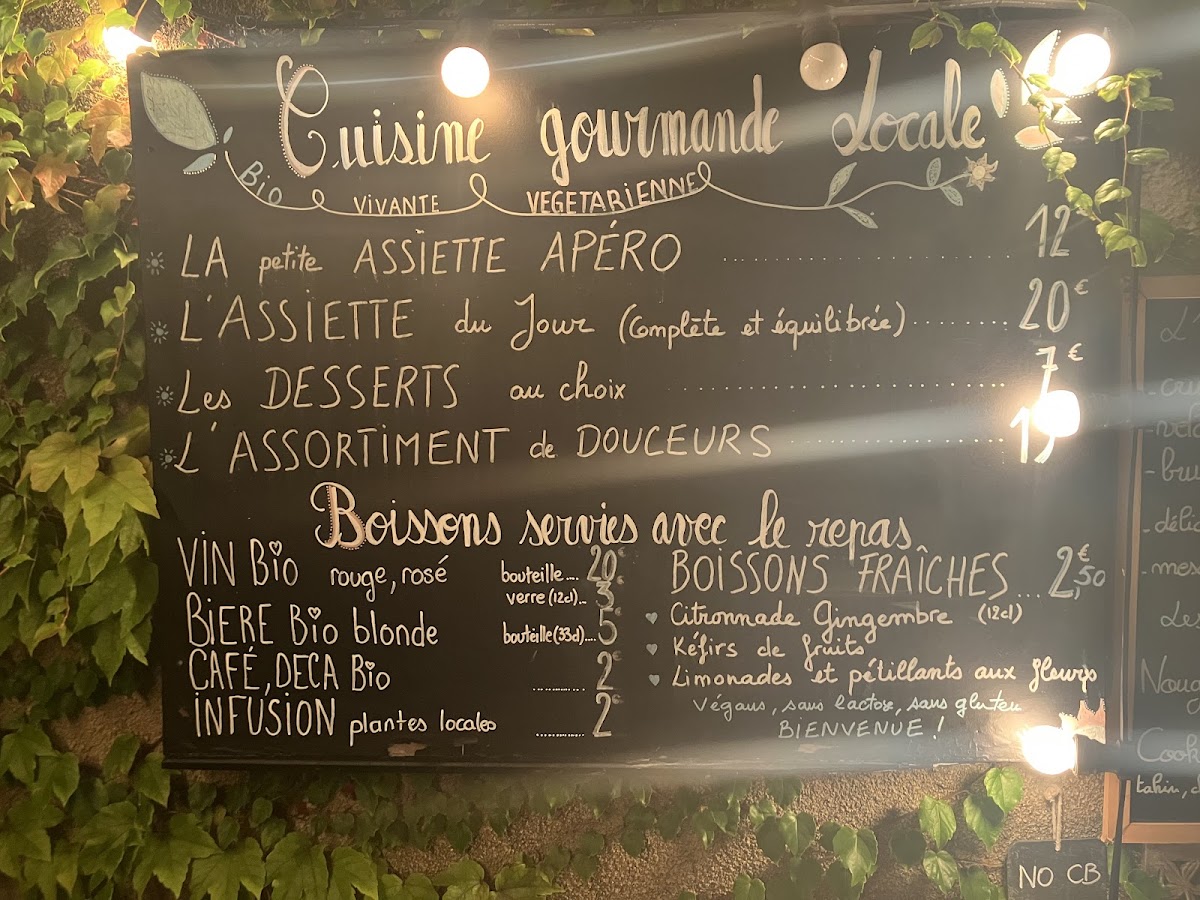 Cuisine gourmande Locale
BIO VIVANTE VEGETARIENNE
LA petite ASSIETTE APÉRO ........ 12
L'ASSIETTE du Jour (Complète et équilibrée) ........ 20€
Les DESSERTS au choix ........ 7€
L'ASSORTIMENT de DOUCEURS ........
Boissons servies avec le repas
VIN BiO rouge, rosé bouteille.... 20€
verre (12cl).. 3€
BIERE BiO blonde bouteille (33cl).... 5€
CAFÉ, DECA BiO ........ 2€
INFUSION plantes locales ........ 2€
BOISSONS FRAÎCHES ... 2€,50
Citronnade Gingembre (12cl)
Kéfirs de fruits
Limonades et pétillants aux fleurs
Végans, sans lactose, sans gluten
BIENVENUE !
L'
- déli
- mes
tahin,
NO CB